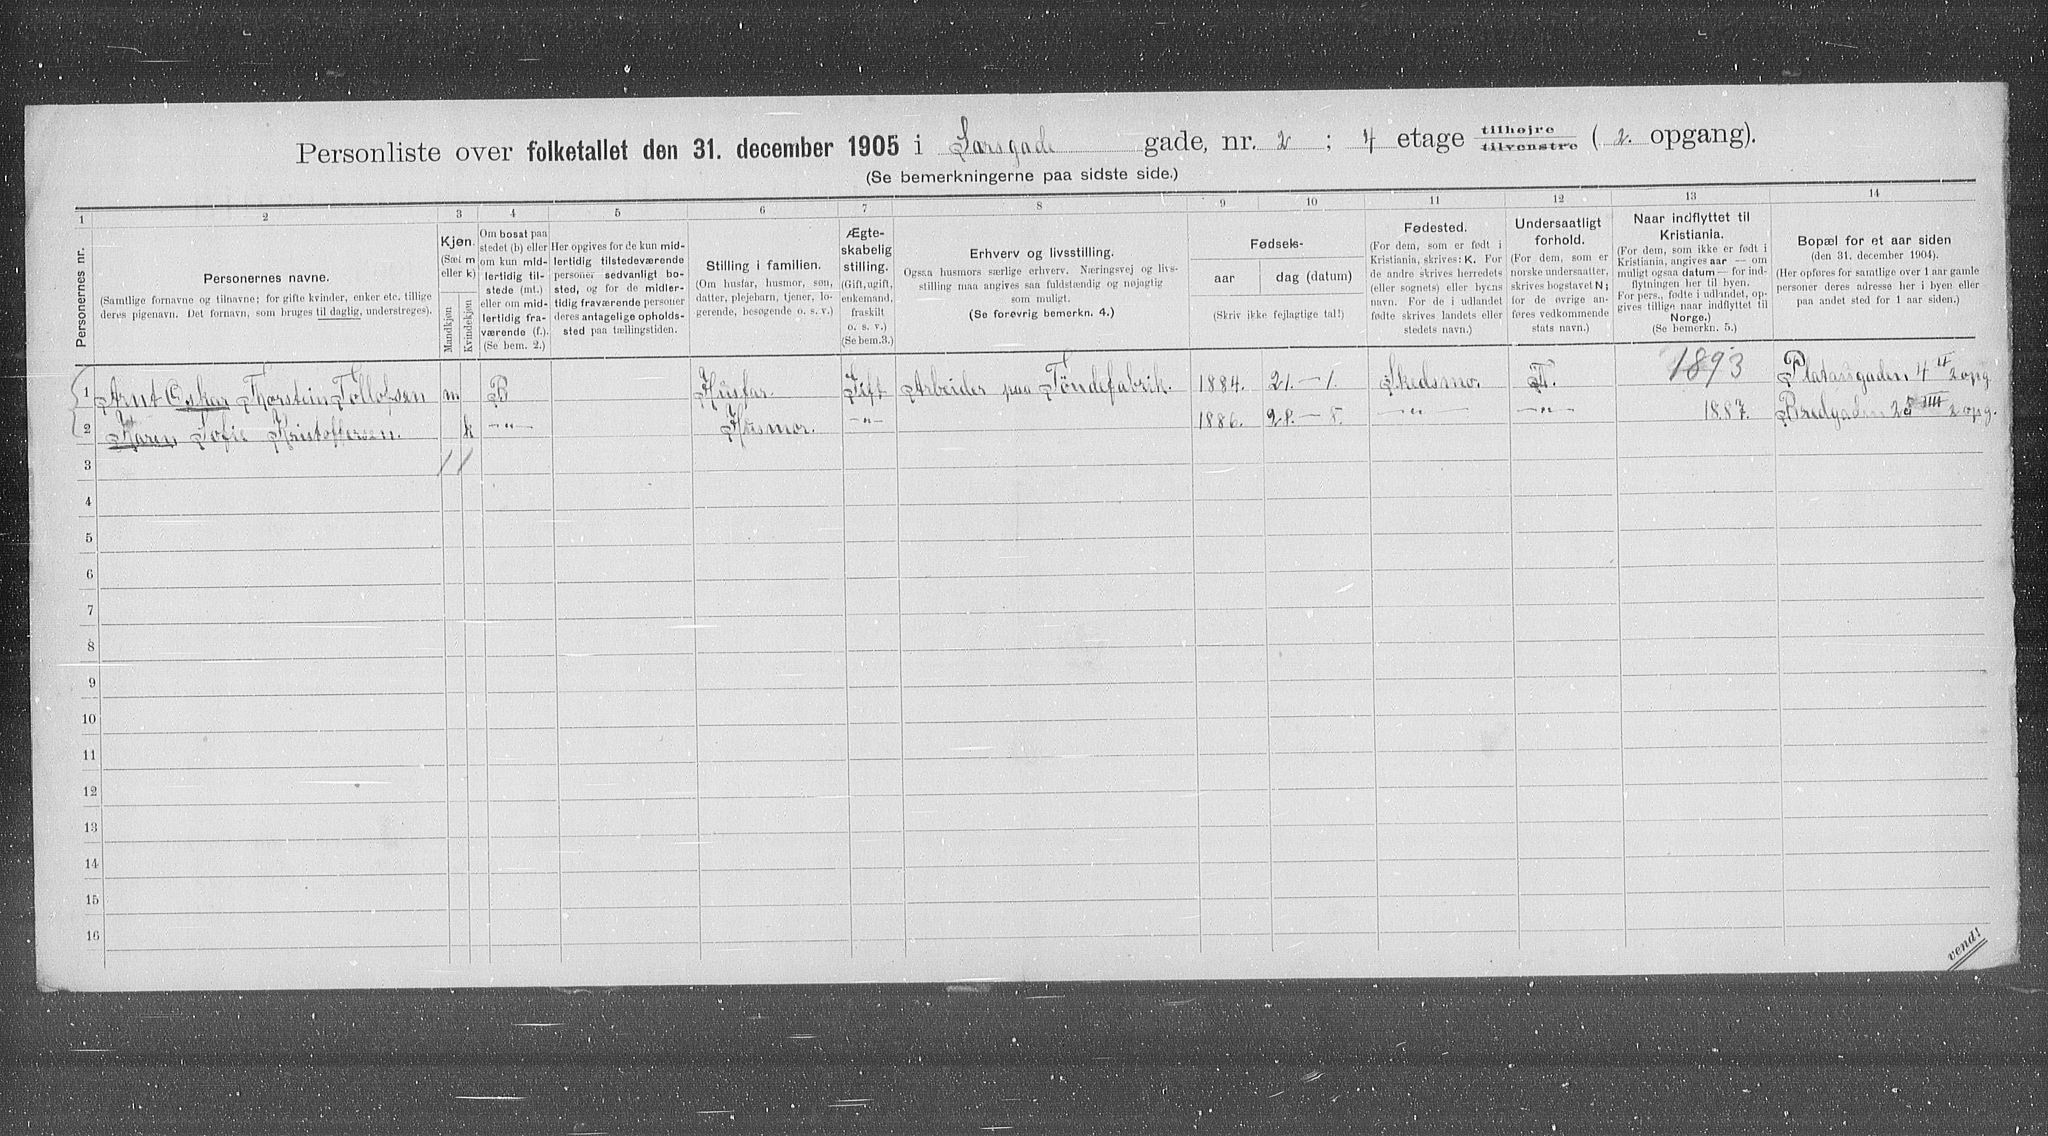 Personliste over folketallet den 31. december 1905 i Sarsgade gade, nr. 2 ; 4 etage tilhøjre tilvenstre ( 2. opgang).
(Se bemerkningerne paa sidste side.)
1 2 3 4 5 6 7 8 9 10 11 12 13 14
Personernes nr.
Personernes navne.
(Samtlige fornavne og tilnavne; for gifte kvinder, enker etc. tillige
deres pigenavn. Det fornavn, som bruges til daglig, understreges).
Kjøn.
(Sæt m
eller k)
Mandkjøn
Kvindekjøn
Om bosat paa
stedet (b) eller
om kun mid-
lertidig til-
stede (mt.)
eller om mid-
lertidig fra-
værende (f.).
(Se bem. 2.)
Her opgives for de kun mid-
lertidig tilstedeværende
personer sedvanligt bo-
sted, og for de midler-
tidig fraværende personer
deres antagelige opholds-
sted paa tællingstiden.
Stilling i familien.
(Om husfar, husmor, søn,
datter, plejebarn, tjener, lo-
gerende, besøgende o. s. v.)
Ægte-
skabelig
stilling.
(Gift, ugift,
enkemand,
fraskilt
o. s. v.)
(Se bem.3.)
Erhverv og livsstilling.
Ogsaa husmors særlige erhverv. Næringsvej og livs-
stilling maa angives saa fuldstændig og nøjagtig
som muligt.
(Se forøvrig bemerkn. 4.)
Fødsels-
aar
dag (datum)
(Skriv ikke fejlagtige tal!)
Fødested.
(For dem, som er født i
Kristiania, skrives: K. For
de andre skrives herredets
(eller sognets) eller byens
navn. For de i udlandet
fødte skrives landets eller
stedets navn.)
Undersaatligt
forhold.
(For dem, som er
norske undersaatter,
skrives bogstavet N;
for de øvrige an-
føres vedkommende
stats navn.)
Naar indflyttet til
Kristiania.
(For dem, som ikke er født i
Kristiania, angives aar — om
muligt ogsaa datum — for ind-
flytningen her til byen.
For pers., fødte i udlandet, op-
gives tillige naar indflyttet til
Norge.)
(Se bemerkn. 5.)
Bopæl for et aar siden
(den 31. december 1904).
(Her opføres for samtlige over 1 aar gamle
personer deres adresse her i byen eller
paa andet sted for 1 aar siden.)
1 Arnt Oskar Thorstein Tollofsen m B Husfar Gift Arbeider paa Tøndefabrik. 1884. 21.—1. Skedsmo. N. 1893 Platousgaden 4 II 2 opg
2 Karen Sofie Kristoffersen. k —"— Husmor. —"— 1886. 28.—8. —"— —"— 1887. Bredgaden 2 IIII 2 opg.
3
4
5
6
7
8
9
10
11
12
13
14
15
16
vend!